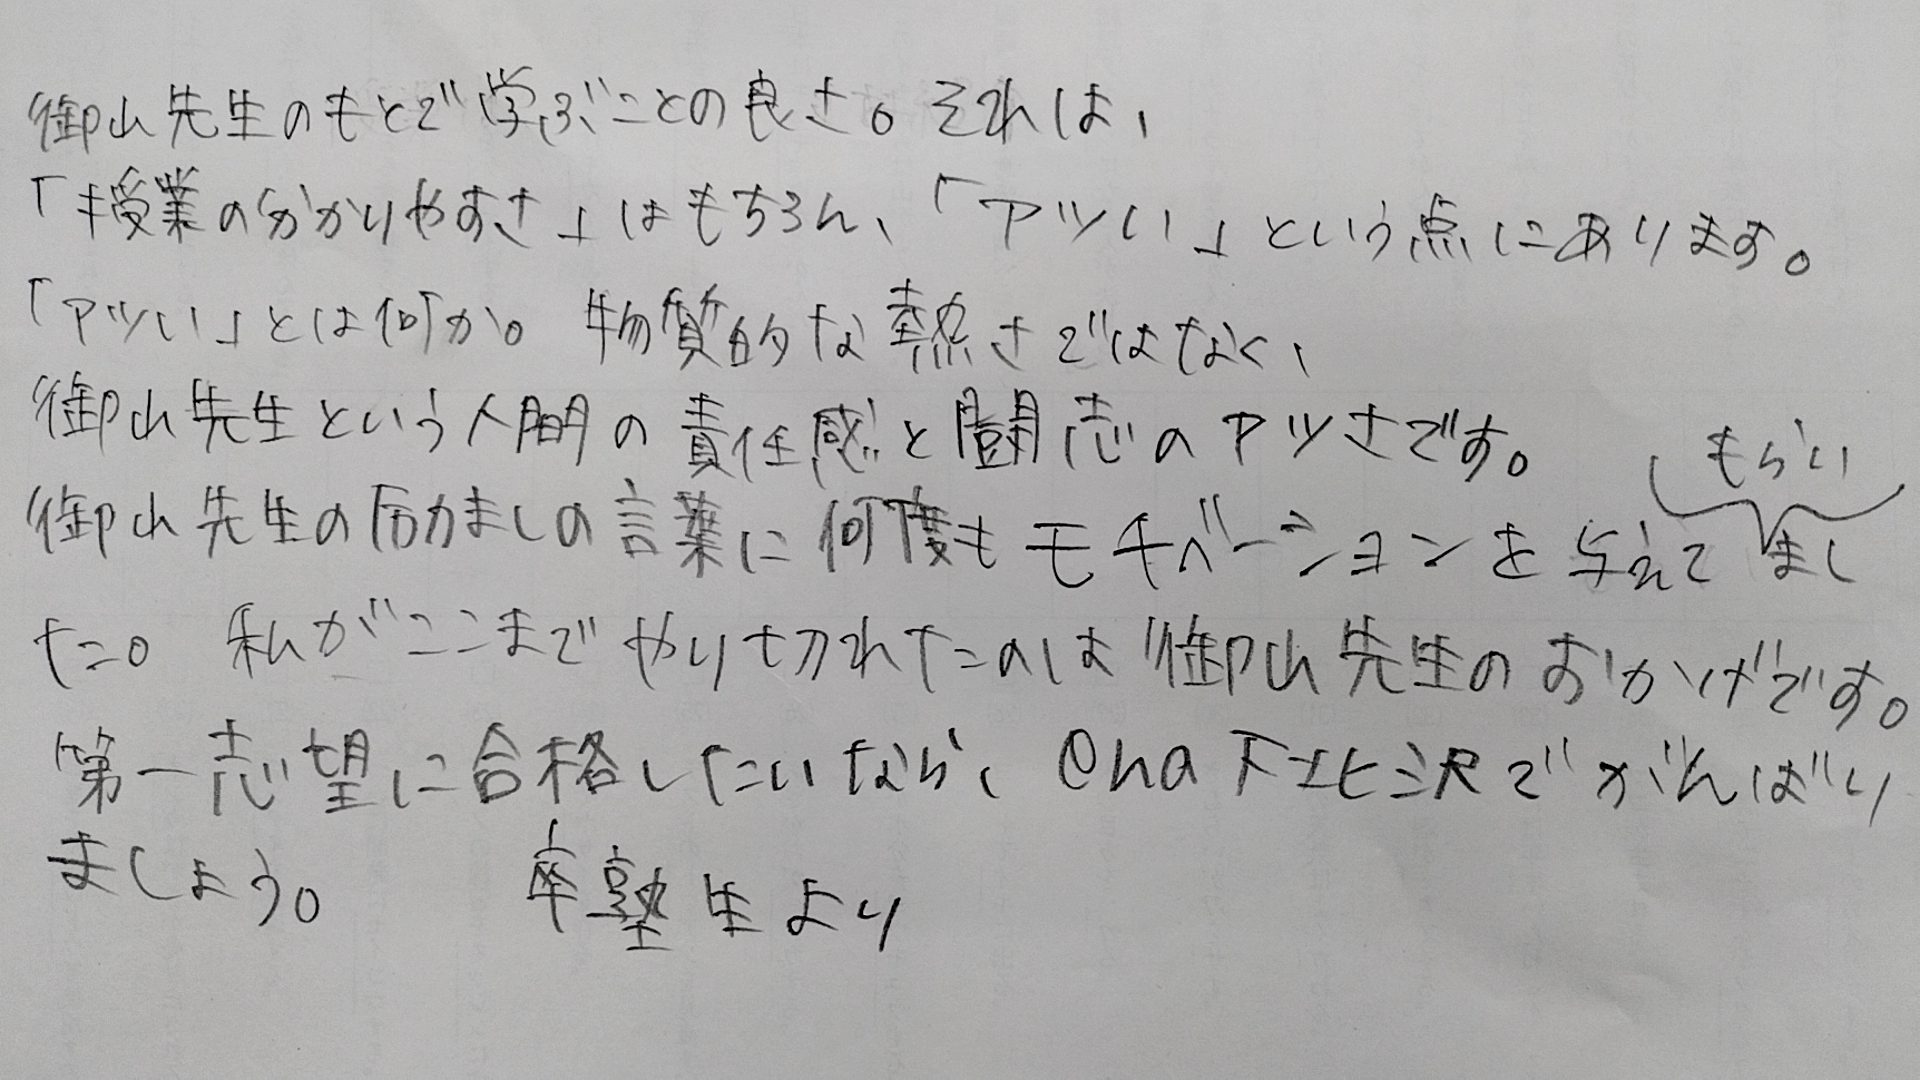 御山先生のもとで学ぶことの良さ。それは、
「授業の分かりやすさ」はもちろん、「アツい」という点にあります。
「アツい」とは何か。物質的な熱さではなく、
御山先生という人間の責任感と闘志のアツさです。
もらい
御山先生の励ましの言葉に何度もモチベーションを与えてまし
た。私がここまでやり切れたのは御山先生のおかげです。
第一志望に合格したいなら、ena下北沢でがんばり
ましょう。 卒塾生より